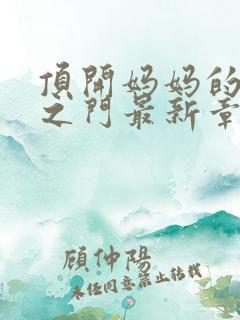 頂開妈妈的
之门最新章
顾仲陽
未经同意禁止转载